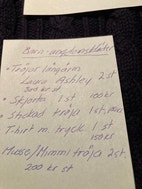 Barn-ungdomskläder
• Tröjor långärm
Laura Ashley 2 st
200 kr st
• Skjorta 1 st 100 kr
• Stickad tröja 1 st,
T-shirt m. tryck 1 st
150 kr
Musse/Mimmi tröja 2 st,
200 kr st